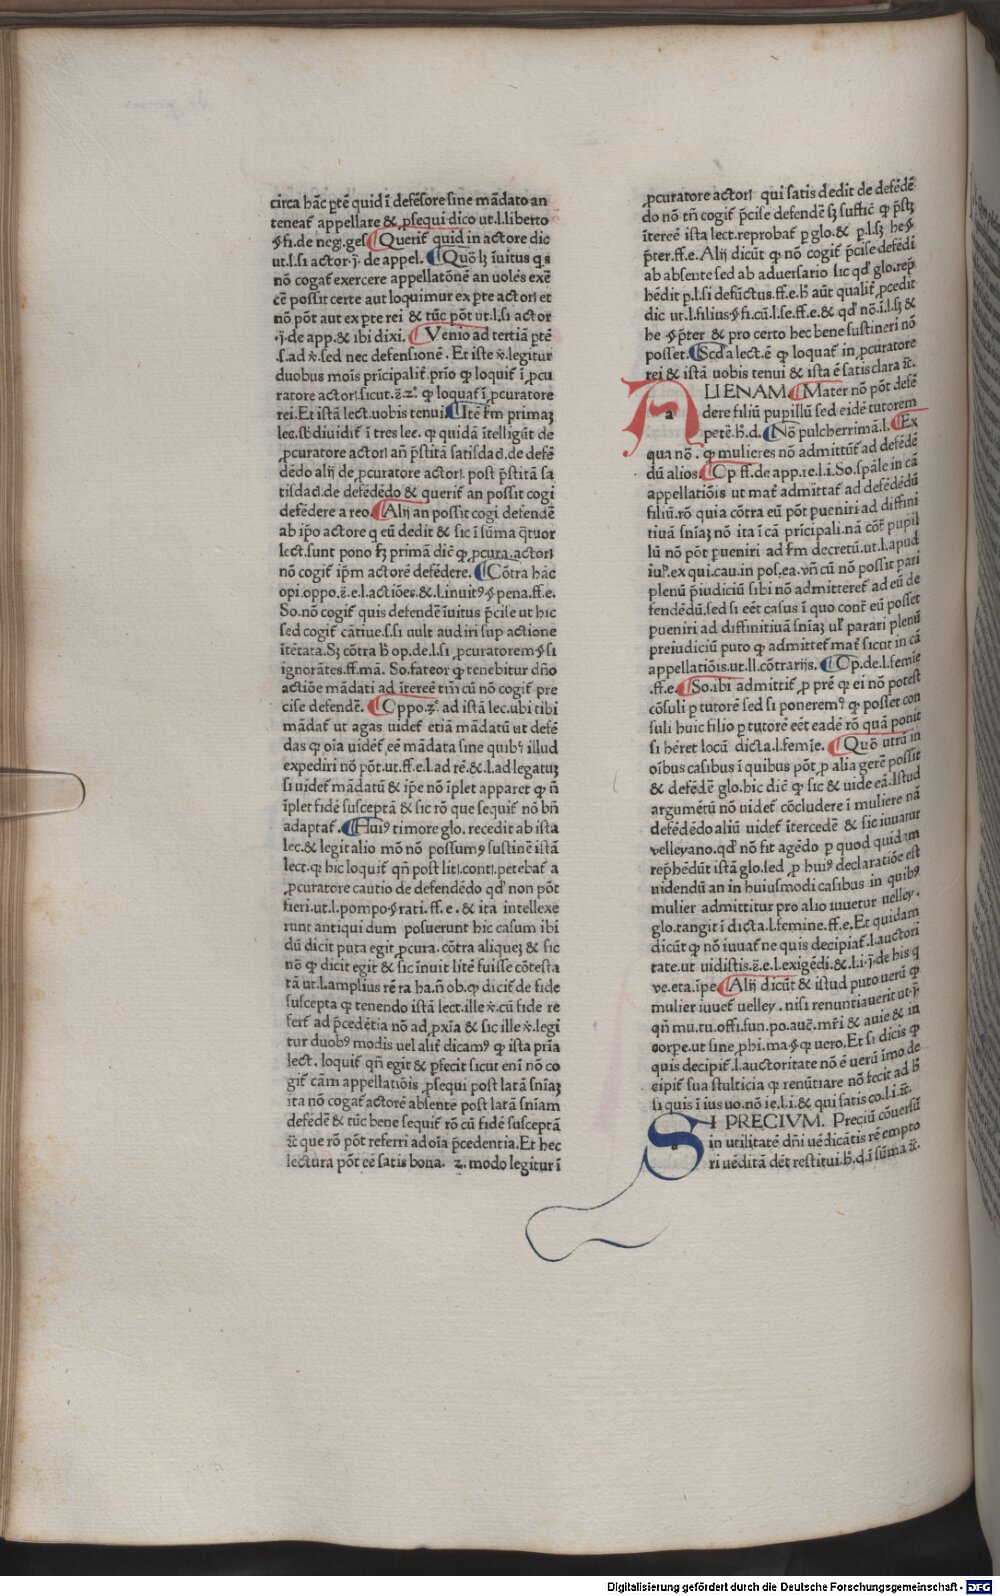 circa hãc ptẽ quid ĩ defẽsore sine mãdato an
teneat̃ appellare & ꝓsequi dico ut.l.liberto
.§.fi.de neg.ges ¶Querit̃ quid in actore dic
ut.l.si actor.j̃.de appel. ¶Quõ lꝫ ĩuitus q̃s
nõ cogat̃ exercere appellatõnẽ an uolẽs exerẽ
cẽ possit certe aut loquimur ex pte actorɩ et
nõ põt aut ex pte rei & tũc põt ut.l.si actor
.j̃.de app.& ibi dixi. ¶Venio ad tertiã ptẽ
.s̃.ad ꝟ̃.sed nec defensionẽ. Et iste ꝟ̃.legitur
duobus mois prĩcipalit̃.prĩo ꝙ loquit̃ ĩ ꝓcu
ratore actorɩ.sicut.z̃.z.° ꝙ loquat̃ ĩ ꝓcuratore
rei.Et istã lect.uobis tenui.¶Itẽ fm primaꝫ
lec.sƀdiuidit̃ ĩ tres lec. ꝙ quidã ĩtelligũt de
ꝓcuratore actorɩ añ p̃stitã satisdacɩ.de defẽ
dẽdo alij de ꝓcuratore actorɩ. post p̃stitã sa
tisdacɩ.de defẽdẽdo & querit̃ an possit cogi
defẽdere a reo.¶Alij an possit cogi defendẽ
ab ip̃o actore q eũ dedit & sic ĩ sũma q̃tuor
lect.sunt pono fꝫ primã dic̃ ꝙ ꝓcura.actorɩ
nõ cogit̃ ip̃m actorẽ defẽdere. ¶Cõtra hãc
opi.oppo.z̃.e.l.actiões.&.l.inuitꝰ.§.pena.ff.e.
So.nõ cogit̃ quis defendẽ ĩuitus p̃cise ut hic
sed cogit̃ cãtiue.s̃.si uult audiri sup actione
ĩtẽtata.Sꝫ cõtra ħ op.de.l.si ꝓcuratorem.§.si
ignorãtes.ff.mã. So.fateor ꝙ tenebitur dño
actiõe mãdati ad ĩtereẽ tm̃ cũ nõ cogit̃ pre
cise defendẽ. ¶Oppo.z.° ad istã lec.ubi tibi
mãdat̃ ut agas uidet̃ etiã mãdatũ ut defẽ
das ꝙ oĩa uidẽt̃ eẽ mãdata sine quibꝰ illud
expediri nõ põt.ut.ff.e.l.ad rẽ.&.l.ad legatuꝫ
si uidet̃ mãdatũ & ip̃e nõ ĩplet apparet ꝙ ñ
ĩplet fidẽ susceptã & sic rõ que sequit̃ nõ bñ
adaptat̃. ¶Huiꝰ timore glo. recedit ab ista
lec.& legit alio mõ nõ possumꝰ sustinẽ istã
lect. ꝙ hic loquit̃ qñ post litɩ.contɩ.petebat̃ a
ꝓcuratore cautio de defendẽdo qđ non põt
fieri.ut.l.pompo.§.rati.ff.e. & ita intellexe
runt antiqui dum posuerunt hic casum ibi
dũ dicit puta egit ꝓcura. cõtra aliqueꝫ & sic
nõ ꝙ dicit egit & sic ĩnuit litẽ fuisse cõtesta
tã ut.l.amplius rẽ ra ha.ñ ob.ꝙ dicit̃ de fide
suscepta ꝙ tenendo istã lect.ille ꝟ̃.cũ fide re
fert̃ ad p̃cedẽtia nõ ad ꝓxĩa & sic ille ꝟ̃.legi
tur duobꝰ modis uel alit̃ dicamꝰ ꝙ ista prĩa
lect. loquit̃ qñ egit & ꝓfecit sicut enĩ nõ co
git̃ cãm appellatiõis ꝓsequi post latã sñiaꝫ
ita nõ cogat̃ actorẽ absentẽ post latã sñiam
defẽdẽ & tũc bene sequit̃ rõ cũ fidẽ susceptã
z̃c̃ que rõ põt referri ad oĩa p̃cedentia.Et hec
lectura põt eẽ satis bona. z. modo legitur ĩ
ꝓcuratore actorɩ qui satis dedit de defẽdẽ
do nõ tñ cogit̃ p̃cise defendẽ sꝫ suffic̃ ꝙ p̃stꝫ
ĩtereẽ ista lect.reprobat̃ p glo.& p.l.sꝫ he.§.
p̃ter.ff.e.Alij dicũt ꝙ nõ cogit̃ p̃cise defẽdi
ab absente sed ab aduersario sic qđ glo.rep̃
hẽdit p.l.si defũctus.ff.e.ħ aũt qualit̃ ꝓcedit
dic ut.l.filius.§.fi.cũ.l.se.ff.e.& qđ nõ.ĩ.l.sꝫ &
he.§.p̃ter & pro certo hec bene sustineri nõ
posset.¶Scđa lect.ẽ ꝙ loquat̃ in ꝓcuratore
rei & istã uobis tenui & ista ẽ satis clara z̃c̃.
ALIENAM.¶Mater nõ põt defẽ
dere filiũ pupillũ sed eidẽ tutorem
petẽ.ħ.d.¶Nõ pulcherrimã.l.¶Ex
qua nõ. ꝙ mulieres nõ admittũt̃ ad defẽdẽ
dũ alios.¶Op ff.de app.re.l.i.So.sp̃ale in cã
appellatiõis ut mat̃ admĩttat̃ ad defẽdẽdũ
filiũ.rõ quia cõtra eũ põt pueniri ad diffini
tiuã sñiaꝫ nõ ita ĩ cã prĩcipali.nã cõt̃ pupil
lũ nõ põt pueniri ad fm decretũ.ut.l.apud
iuꝑ.ex qui.cau.in pos.ea.vñ cũ nõ possit pari
plenũ p̃iudiciũ sibi nõ admitteret̃ ad eũ de
fendẽdũ.sed si eẽt casus ĩ quo cont̃ eũ posset
pueniri ad diffinitiuã sñiaꝫ ul̃ parari plenũ
preiudiciũ puto ꝙ admittet̃ mat̃ sicut in cã
appellatiõis.ut.ll.cõtrarijs. ¶Op.de.l.femĩe
.ff.e.¶So.ibi admittit̃ ꝓ prẽ ꝙ ei nõ potest
cõsuli p tutorẽ sed si poneremꝰ ꝙ posset con
suli huic filio p tutorẽ eẽt eadẽ rõ quã ponit
si hẽret locũ dicta.l.femĩe. ¶Quõ utrũ in
oĩbus casibus ĩ quibus põt ꝓ alia gerẽ possit
& defẽdẽ glo.hic dic̃ ꝙ sic & uide eã.Istud
argumẽtũ nõ uidet̃ cõcludere ĩ muliere nã
defẽdẽdo aliũ uidet̃ ĩtercedẽ & sic iuuatur
velleyano.qđ nõ fit agẽdo p quod quidam
rep̃hẽdũt istã glo.sed ꝓ huiꝰ declaratiõe est
uidendũ an in huiusmodi casibus in quibꝰ
mulier admittitur pro alio iuuetur uelley.
glo.tangit ĩ dicta.l.femine.ff.e.Et quidam
dicũt ꝙ nõ iuuat̃ ne quis decipiat̃.l.auctori
tate.ut uidistis.z̃.e.l.exigẽdi.&.l.i.j̃.de his q̃
ve.eta.ĩpe.¶Alij dicũt & istud puto uerũ ꝙ
mulier iuuet̃ uelley. nisi renuntiauerit ut.j̃.
qñ mu.tu.offi.fun.po.auc̃.mr̃i & auie & in
corpe.ut sine ꝓhi.ma.§.ꝙ uero.Et si dicis ꝙ
quis decipit̃.l.auctoritate nõ ẽ uerũ ĩmo de
cipit̃ sua stulticia ꝙ renũtiare nõ fecit ad ħ
si quis ĩ ius uo.nõ ie.l.i.& qui satis co.l.i.z̃c̃.
SI PRECIVM. Preciũ cõuersũ
in utilitatẽ dñi uẽdicãtis rẽ empto
ri uẽditã deƀt restitui.ħ.d.ĩ sũma z̃c̃.
Digitalisierung gefördert durch die Deutsche Forschungsgemeinschaft - DFG